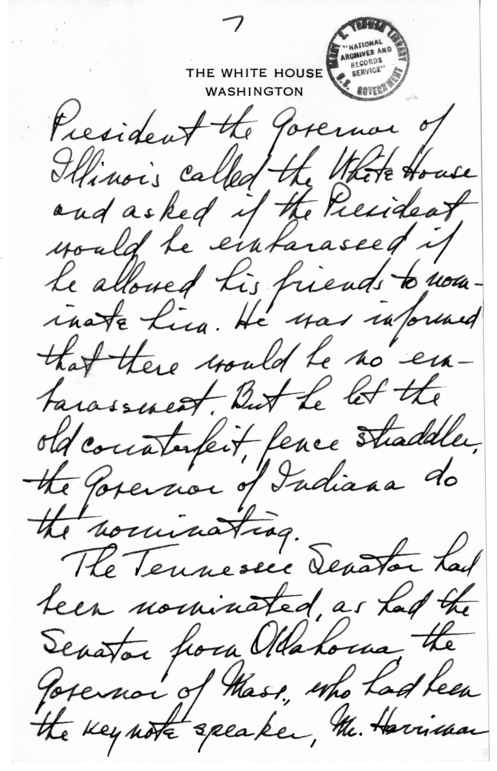 7
HARRY S. TRUMAN LIBRARY
"NATIONAL
ARCHIVES AND
RECORDS
SERVICE"
U.S. GOVERNMENT
THE WHITE HOUSE
WASHINGTON
President the Governor of
Illinois called the White House
and asked if the President
would be embarassed if
he allowed his friends to nom-
inate him. He was informed
that there would be no em-
barassment. But he let the
old counterfeit, fence straddler,
the Governor of Indiana do
the nominating.
The Tennessee Senator had
been nominated, as had the
Senator from Oklahoma, the
Governor of Mass., who had been
the key note speaker, Mr. Harriman